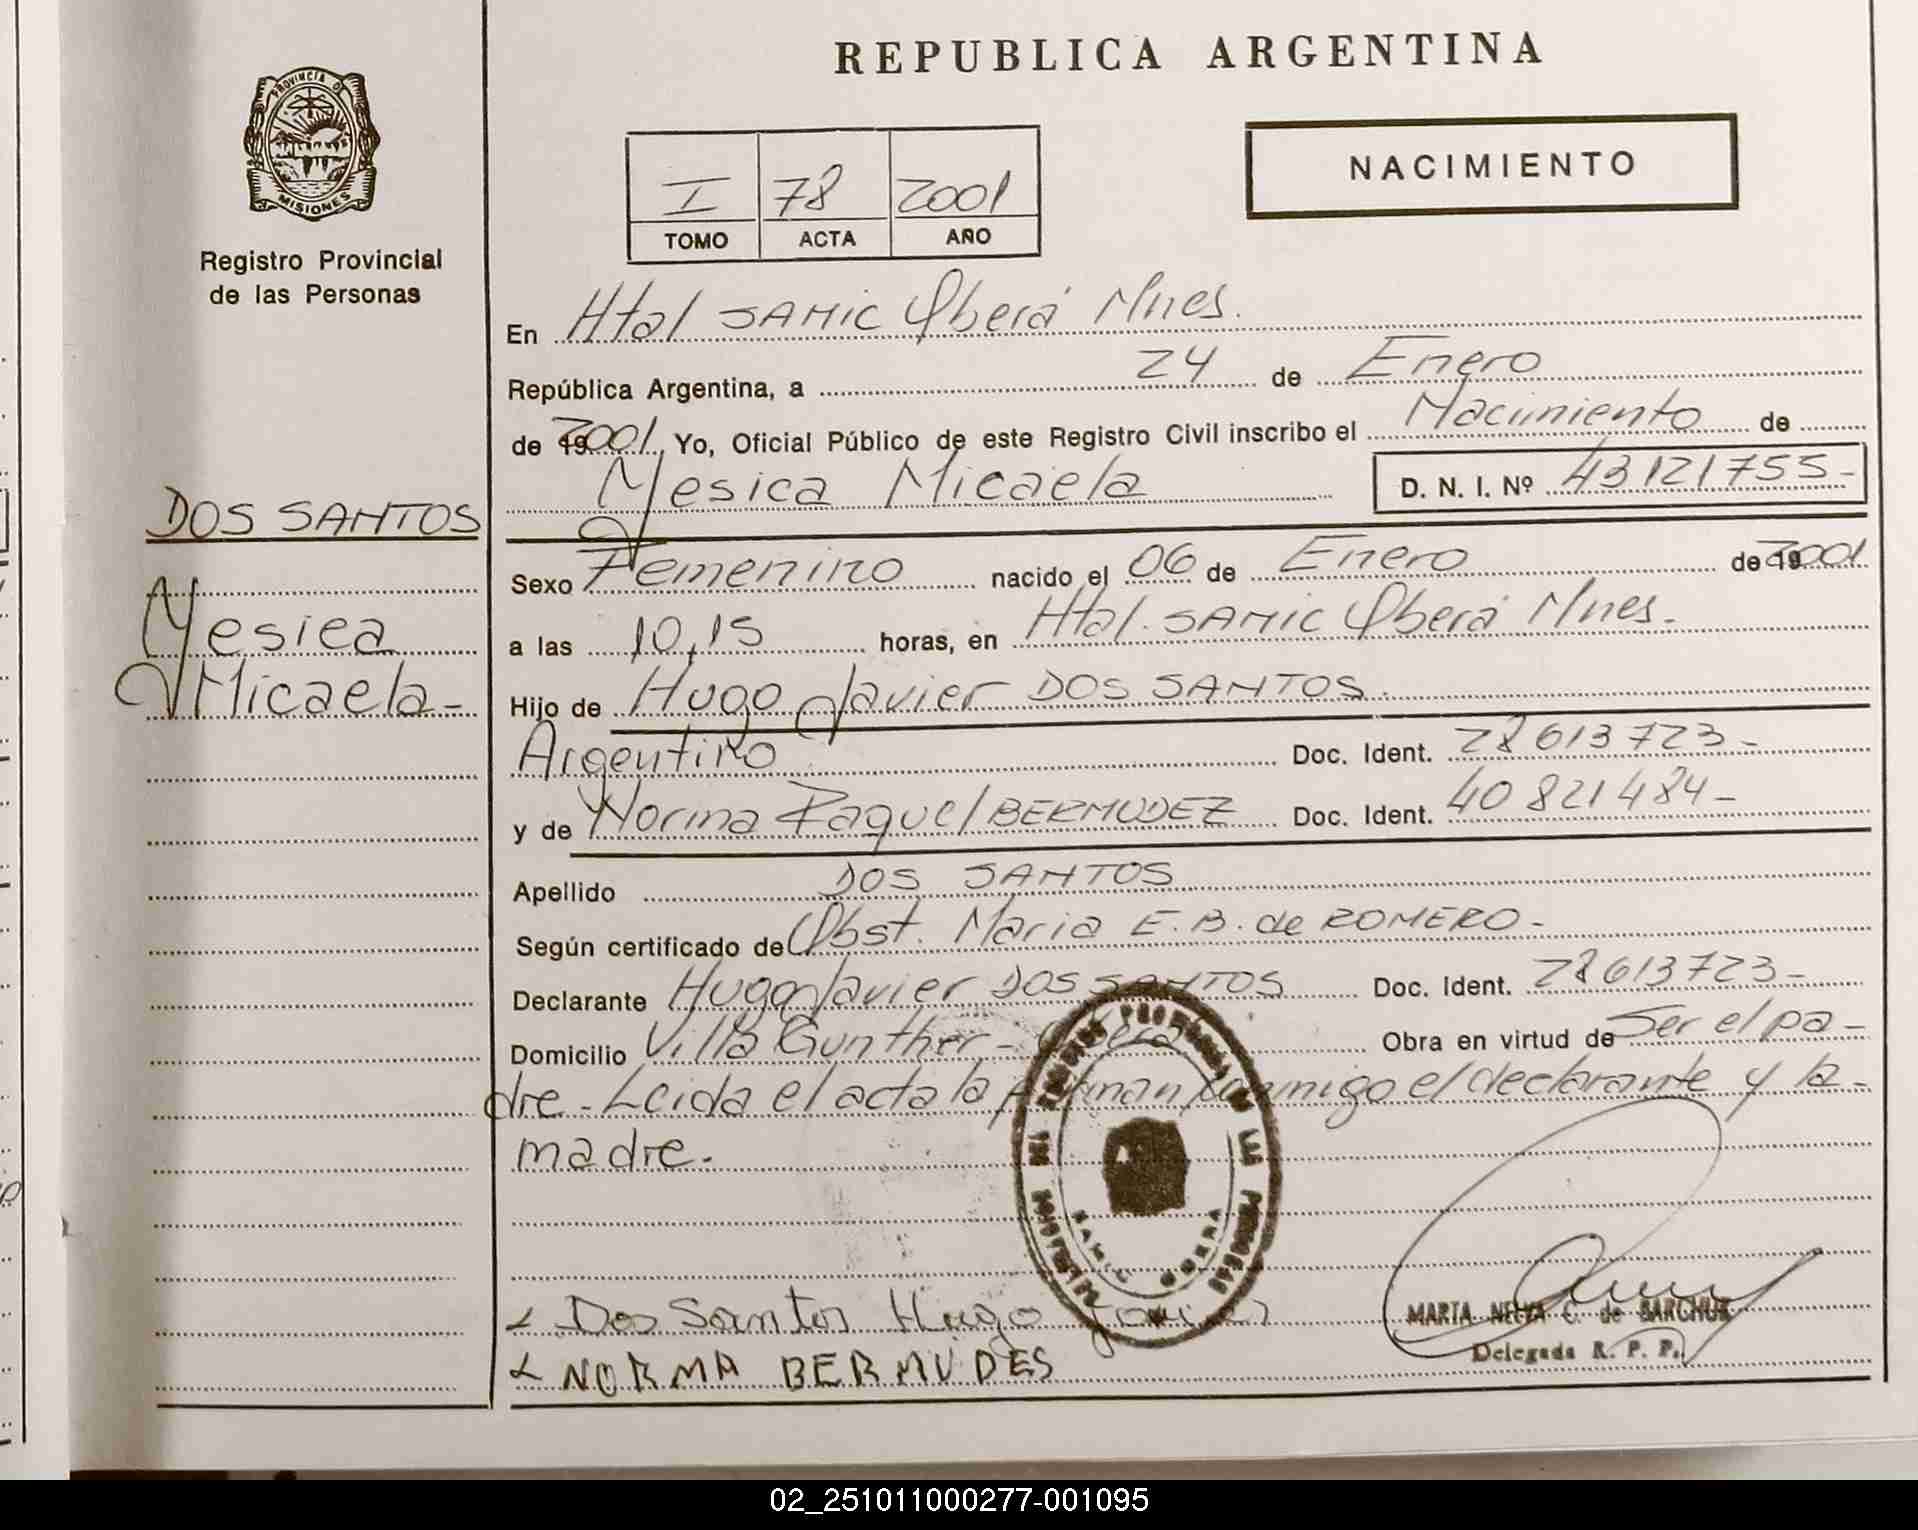 REPUBLICA ARGENTINA
PROVINCIA DE
MISIONES
Registro Provincial
de las Personas
I 78 2001
TOMO ACTA AÑO
NACIMIENTO
DOS SANTOS
Yesica
Micaela-
En Htal SAMIC Oberá Mnes.
República Argentina, a 24 de Enero
de 2001. Yo, Oficial Público de este Registro Civil inscribo el Nacimiento de
Yesica Micaela D. N. I. Nº 43121755-
Sexo Femenino nacido el 06 de Enero de 2001
a las 10,15 horas, en Htal. SAMIC Oberá Mnes.
Hijo de Hugo Javier DOS SANTOS.
Argentino Doc. Ident. 28613723-
y de Norma Raquel BERMUDEZ Doc. Ident. 40821484-
Apellido DOS SANTOS
Según certificado de Obst. Maria E. B. de ROMERO-
Declarante Hugo Javier DOS SANTOS Doc. Ident. 28613723-
Domicilio Villa Gunther- Oberá Obra en virtud de Ser el pa-
dre- Leida el acta la firman conmigo el declarante y la-
madre.
Dos Santos Hugo Javier
NORMA BERMUDES
MARTA NELVA C. de BARCHUK
Delegada R. P. P.
02_251011000277-001095